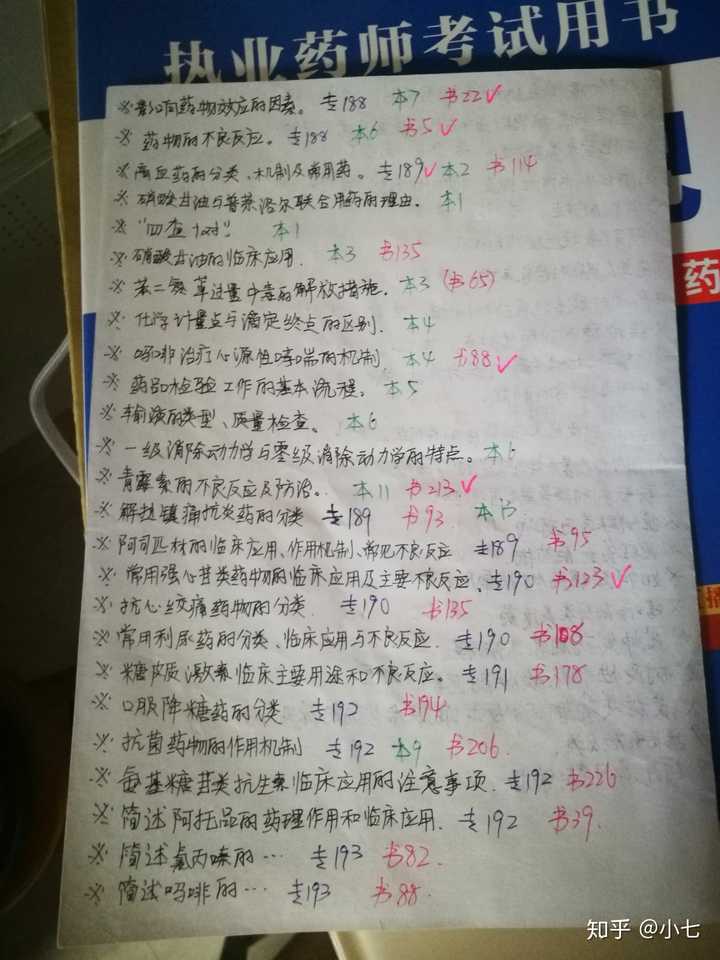 执业药师考试用书
药
※ 影响药物效应的因素。 专188 本7 书22✓
※ 药物的不良反应。 专188 本6 书5✓
※ 高血药的分类、机制及常用药。 专189✓ 本2 书114
※ 硝酸甘油与普萘洛尔联合用药的理由。 本1
※ “四查十对” 本1
※ 硝酸甘油的临床应用. 本3 书135
※ 苯二氮䓬过量中毒的解救措施. 本3 (书65)
※ 化学计量点与滴定终点的区别. 本4
※ 吗啡治疗心源性哮喘的机制 本4 书88✓
※ 药品检验工作的基本流程. 本5
※ 输液的类型、质量检查。 本6
※ 一级消除动力学与零级消除动力学的特点。 本6
※ 青霉素的不良反应及防治。 本11 书213✓
※ 解热镇痛抗炎药的分类 专189 书93 本13
※ 阿司匹林的临床应用、作用机制、常见不良反应 专189 书95
※ 常用强心苷类药物的临床应用及主要不良反应、 专190 书123✓
※ 抗心绞痛药物的分类. 专190 书135
※ 常用利尿药的分类、临床应用与不良反应. 专190 书108
※ 糖皮质激素临床主要用途和不良反应。 专191 书178
※ 口服降糖药的分类 专192 书194
※ 抗菌药物的作用机制 专192 本9 书206.
※ 氨基糖苷类抗生素临床应用的注意事项. 专192 书226
※ 简述阿托品的药理作用和临床应用. 专192 书39.
※ 简述氯丙嗪的… 专193 书82.
※ 简述吗啡的… 专193 书88.
知乎 @小七